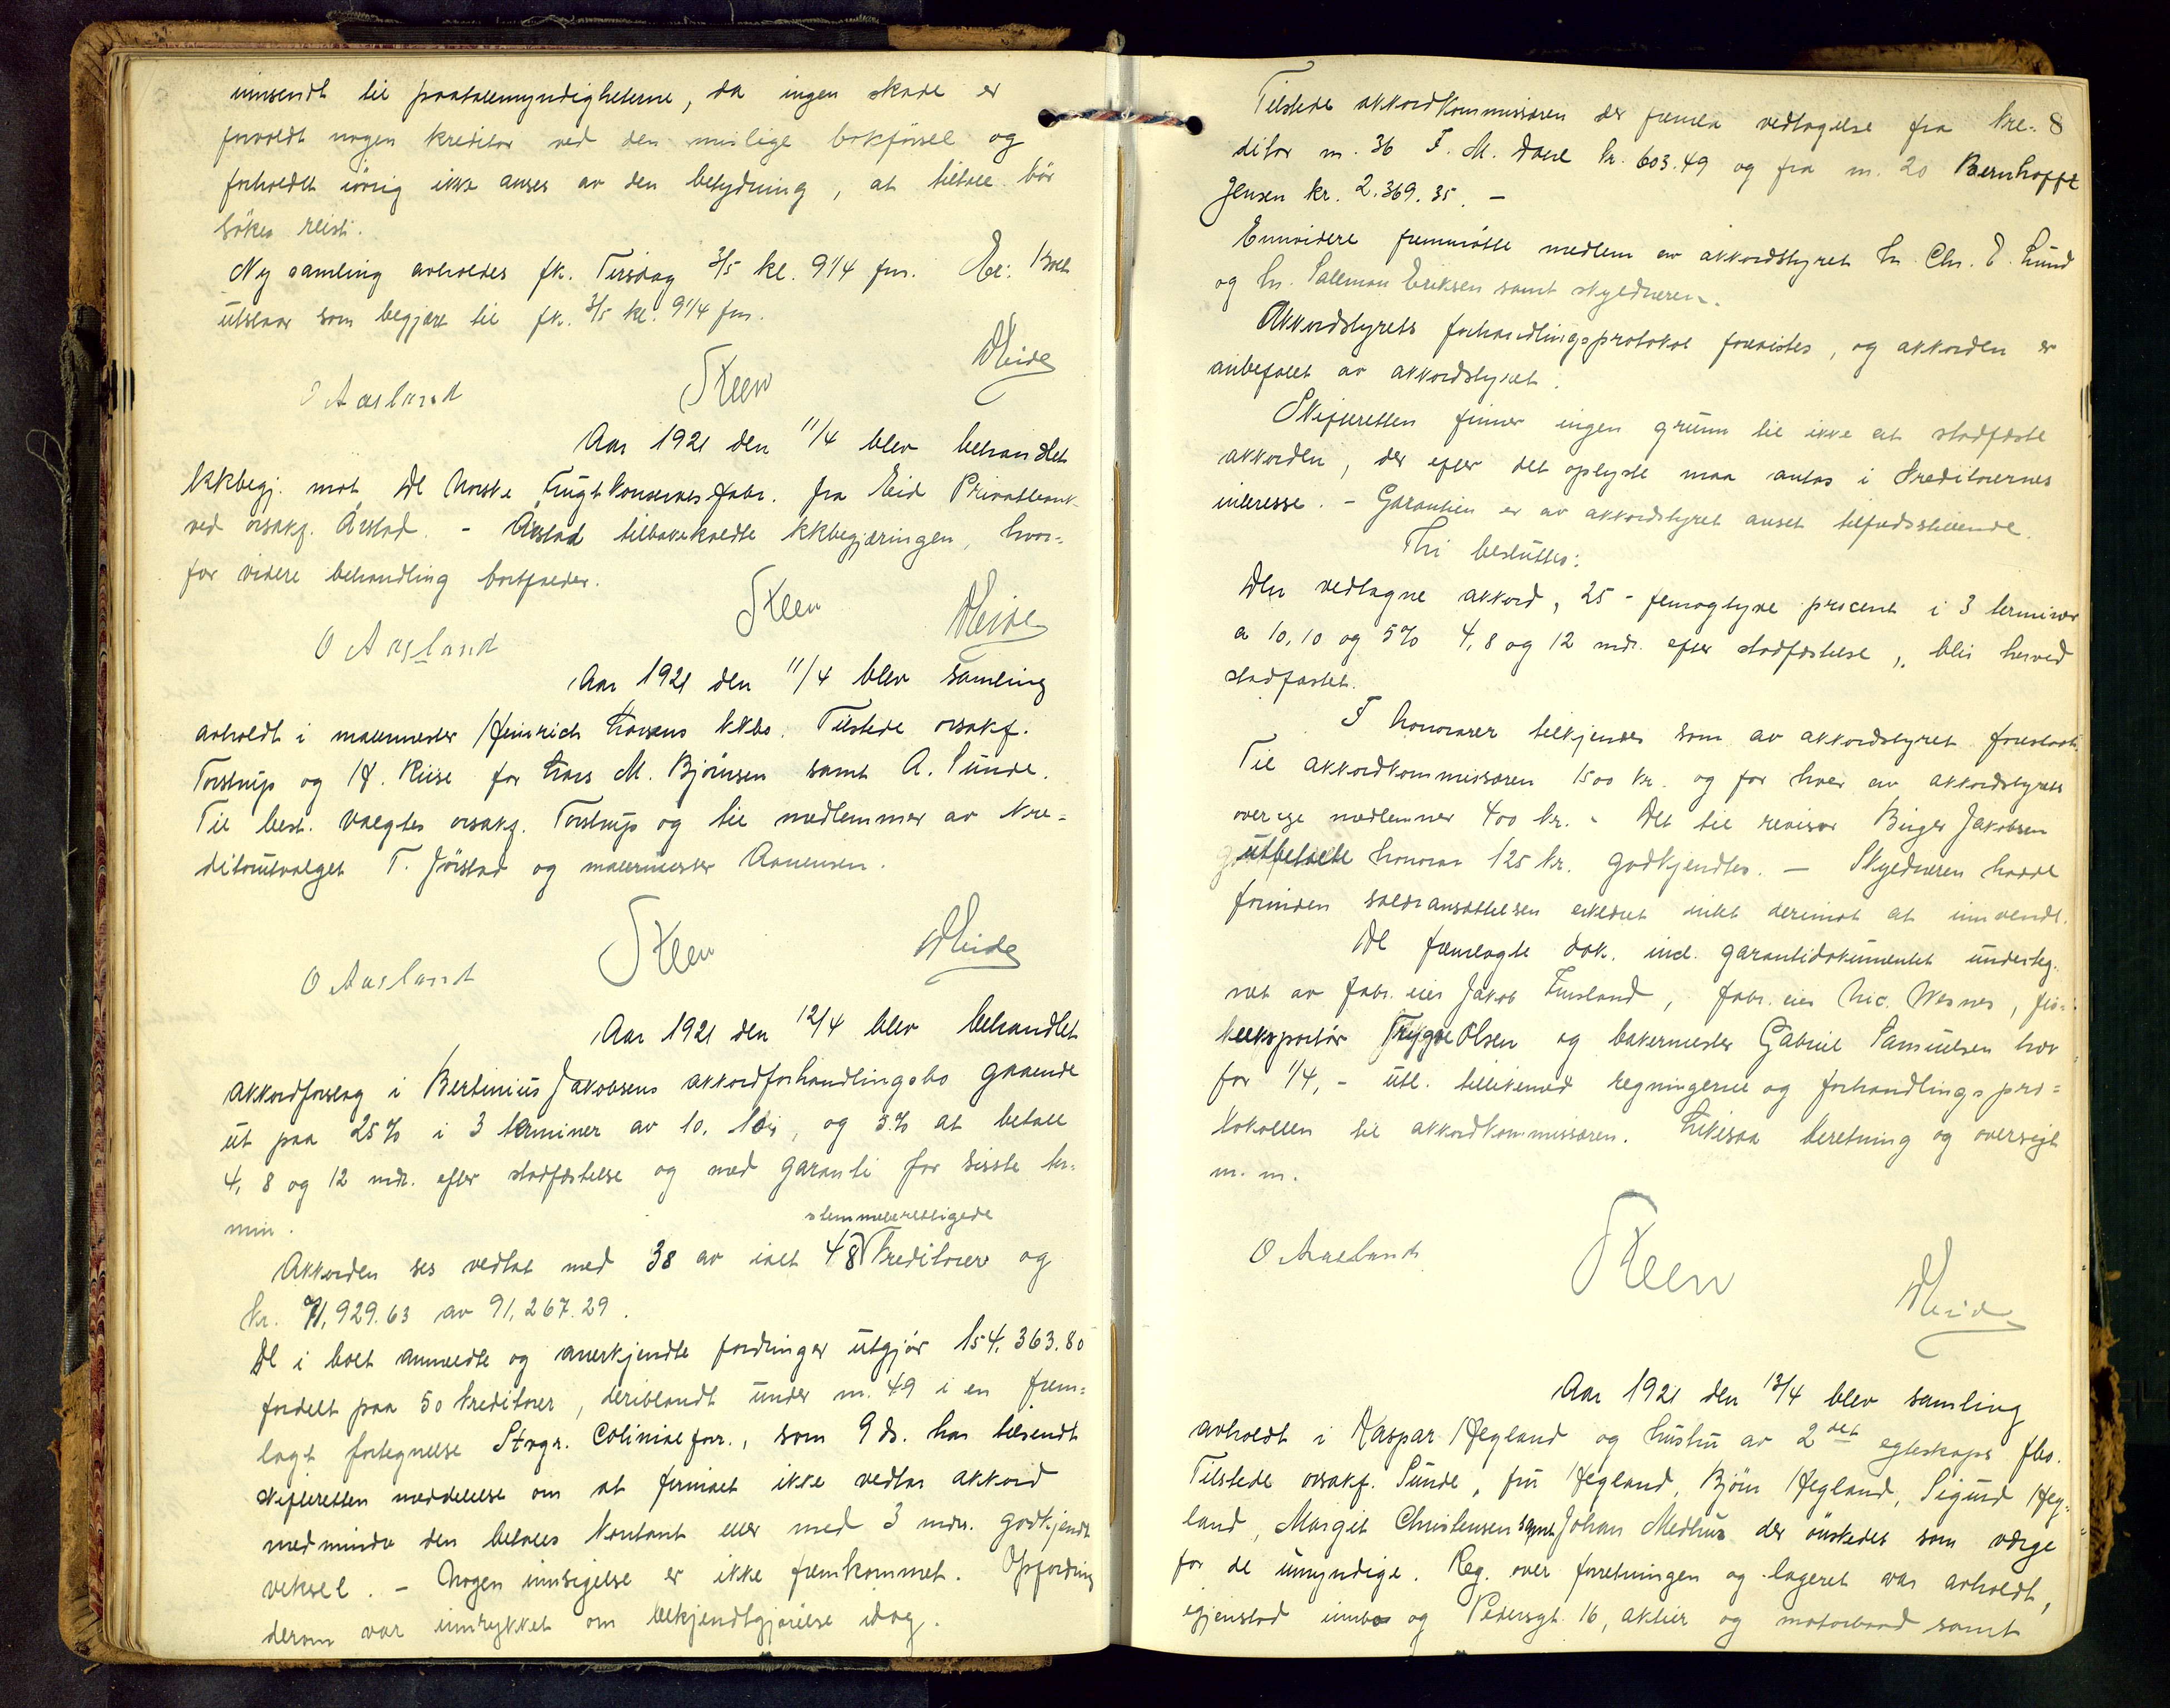 innsendt til paatalemyndigheterne, da ingen skade er
forvoldt nogen kreditor ved den mislige bokførsel og
forholdet iøvrig ikke anses av den betydning, at tiltale bør
søkes reist.
Ny samling avholdes fk. Tirsdag 3/5 kl. 9 1/4 fm. Boet
utstaar som begjært til fk. 3/5 kl. 9 1/4 fm.
O Aasland Steen Heide
Aar 1921 den 11/4 blev behandlet
kkbegj. mot De Norske Frugt konserves-fabr. fra Eid Privatbank
ved orsakf. Årstad. - Årstad tilbakekaldte kkbegjæringen, hvor=
for videre behandling bortfalder.
O Aasland Steen Heide
Aar 1921 den 11/4 blev samling
avholdt i malermester Heinrich Larsens kkbo. Tilstede orsakf.
Torstrup og H. Riise for Lars M. Bjørnsen samt A. Sunde.
Til best. valgtes orsakf. Torstrup og til medlemmer av kre=
ditorutvalget T. Jørstad og malermester Aanensen.
O Aasland Steen Heide
Aar 1921 den 12/4 blev behandlet
akkordforslag i Bertinius Jakobsens akkordforhandlingsbo gaaende
ut paa 25% i 3 terminer av 10, 10, og 5% at betale
4, 8 og 12 mdr. efter stadfæstelse og med garanti for sisste ter=
min.
stemmeberettigede
Akkorden ses vedtat med 38 av ialt 48 kreditorer og
kr. 71,929.63 av 91,267.29.
De i boet anmeldte og anerkjendte fordringer utgjør 154,363.80
fordelt paa 50 kreditorer, deriblandt under nr. 49 i en frem=
lagt fortegnelse Stvgr. Colonialforr., som 9 ds. har tilsendt
skifteretten meddelelse om at firmaet ikke vedtar akkord
medmindre den betales kontant eller med 3 mdrs. godkjendt
veksel. - Nogen innsigelse er ikke fremkommet. Opfordring
derom var innrykket om bekjendtgjørelse idag.
8
Tilstede akkordkommissæren der fremla vedtagelse fra kre=
ditor nr. 36 F. M. Dahl kr. 603.49 og fra nr. 20 Bernhofft
Jensen kr. 2.369.35. -
Ennvidere fremmøtte medlem av akkordstyret hr. Chr. E. Lund
og hr. Salemon Eriksen samt skyldneren.
Akkordstyrets forhandlingsprotokol forevistes, og akkorden er
anbefalet av akkordstyret.
Skifteretten finner ingen grunn til ikke at stadfæste
akkorden, der efter det oplyste maa antas i kreditorernes
interesse. - Garantien er av akkordstyret anset tilfredsstillende.
Thi besluttes:
Den vedtagne akkord, 25 - femogtyve procent i 3 terminer
a 10, 10 og 5% 4, 8 og 12 mdr. efter stadfæstelse, blir herved
stadfæstet.
I honorarer tilkjendes som av akkordstyret foreslaat:
Til akkordkommissæren 1500 kr. og for hver av akkordstyrets
øvrige medlemmer 400 kr. - Det til revisor Birger Jakobsen
utbetalte honorar 125 kr. godkjendtes. - Skyldneren hadde
forinden salæransættelsen erklæret intet derimot at innvende.
De fremlagte dok. incl. garantidokumentet underteg=
net av fabr. eier Jakob Fuusland, fabr. eier Nic. Wesnes, fis=
keeksportør Trygve Olsen og bakermester Gabriel Samuelsen hver
for 1/4, - utl. tillikemed regningerne og forhandlingspro=
tokollen til akkordkommissæren. Likesaa beretning og oversigt
m. m.
O Aasland Steen Heide
Aar 1921 den 13/4 blev samling
avholdt i Kaspar Hegland og hustru av 2det egteskaps fbo.
Tilstede orsakf. Sunde, fru Hegland, Bjørn Hegland, Sigurd Heg=
land, Margit Christensen samt Johan Medhus der ønskedes som værge
for de umyndige. Reg. over forretningen og lageret var avholdt,
igjenstod innbo og Pedersgt. 16, aktier og motorbaad samt